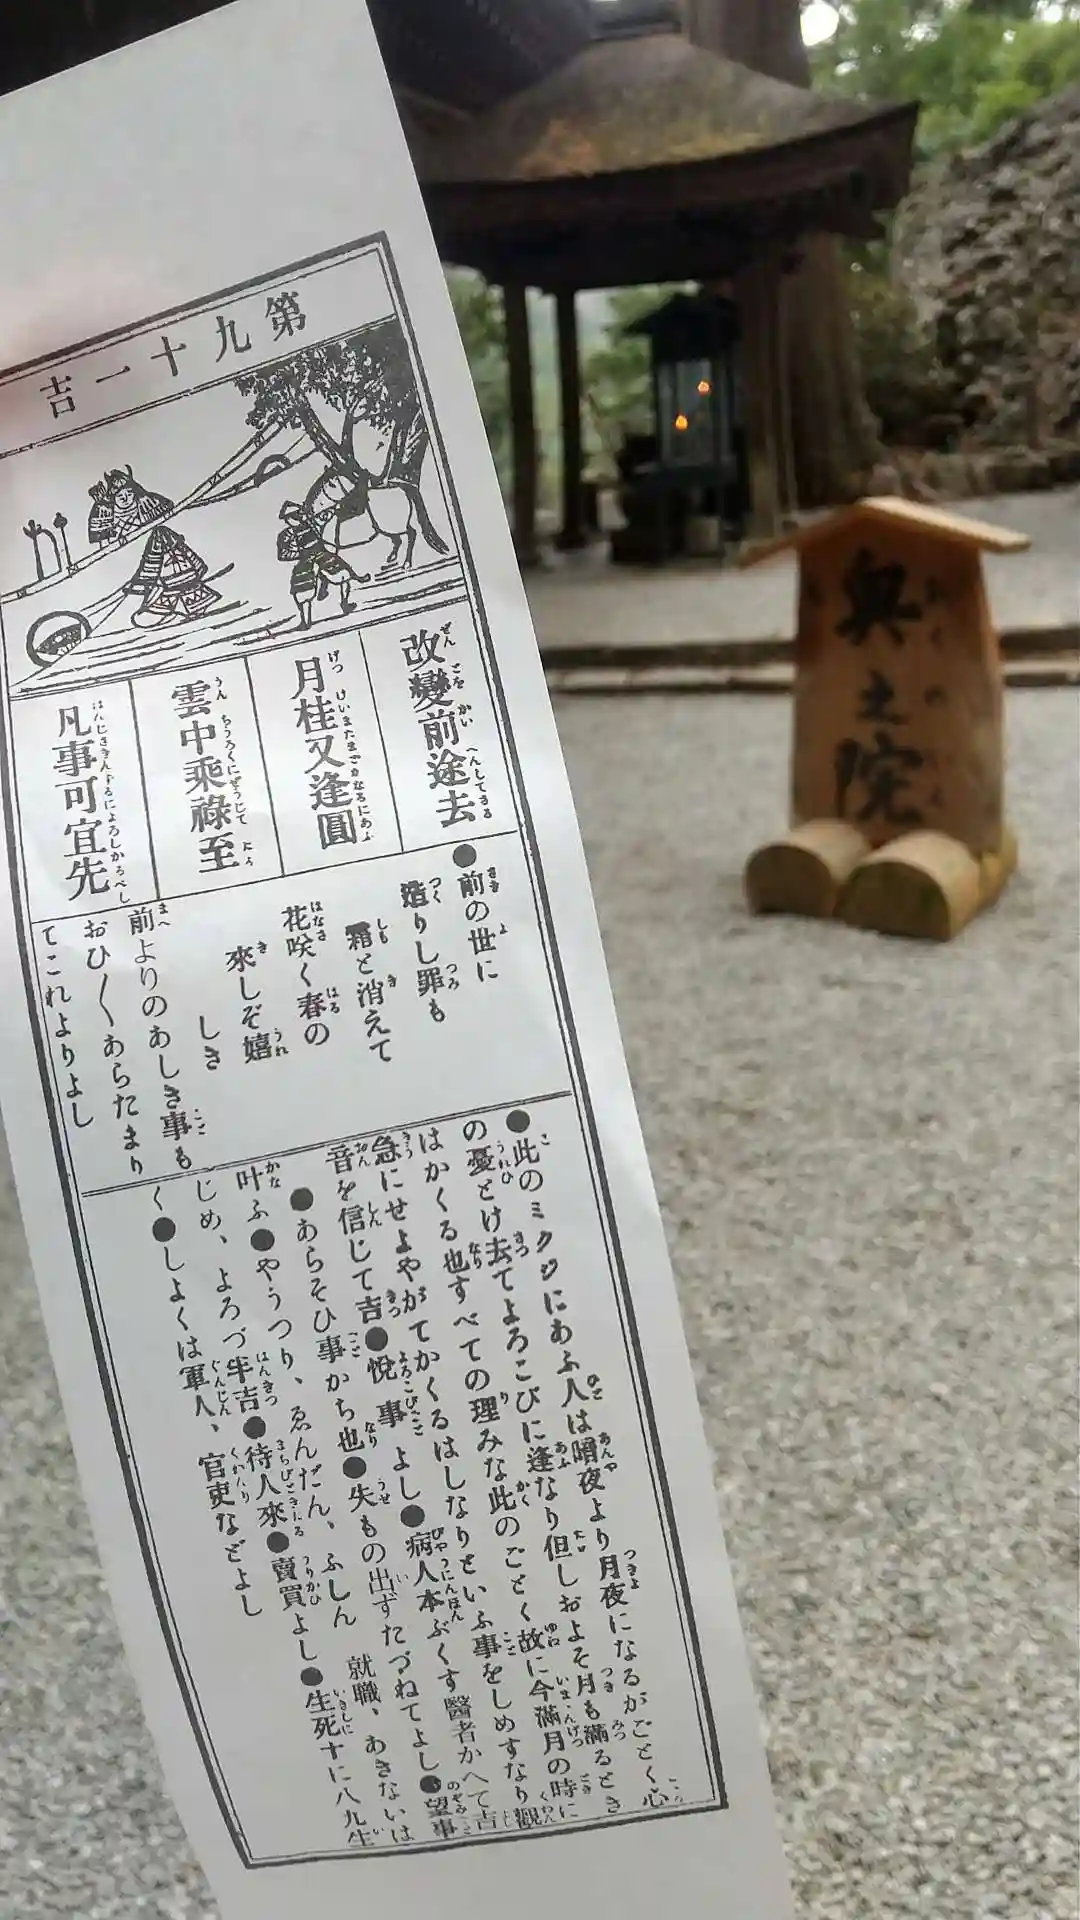 第九十一吉
改變前途去
ぜんごをかいへんしてさる
月桂又逢圓
げつけいまたまどかなるにあふ
雲中乘祿至
うんちうろくにぜうじて
凡事可宜先
●前の世に
造りし罪も
霜と消えて
花咲く春の
來しぞ嬉
しき
前よりのあしき事も
おひ〳〵あらたまり
てこれよりよし
●此のミクジにあふ人は暗夜より月夜になるがごとく心
の憂とけ去てよろこびに逢なり但しおよそ月も滿るとき
はかくる也すべての理みな此のごとく故に今滿月の時に
急にせよやがてかくるはしなりといふ事をしめすなり觀
音を信じて吉●悅事よし●病人本ぶくす醫者かへて吉
●あらそひ事かち也●失もの出ずたづねてよし●望事
叶ふ●やうつり、ゑんだん、ふしん 就職、あきないは
じめ、よろづ半吉●待人來●賣買よし●生死十に八九生
く●しよくは軍人、官吏などよし
奥之院